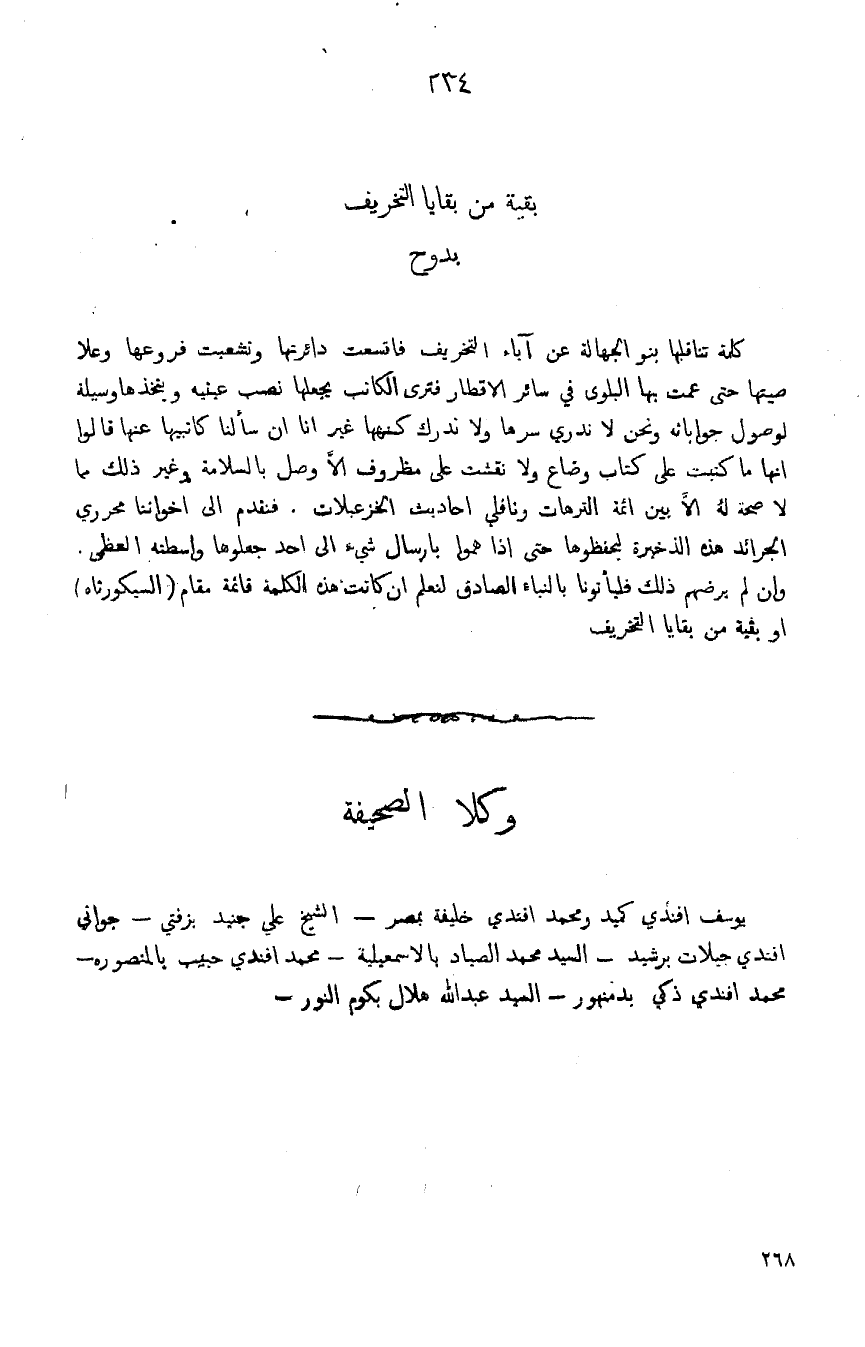 ٢٣٤
بقية من بقايا التخريف
بدوح
كلمة تناقلها بنو الجهالة عن آباء التخريف فاتسعت دائرتها وتشعبت فروعها وعلا
صيتها حتى عمت بها البلوى في سائر الاقطار فترى الكاتب يجعلها نصب عينيه ويتخذها وسيلة
لوصول جواباته ونحن لا ندري سرها ولا ندرك كنهها غير انا ان سألنا كاتبيها عنها قالوا
انها ما كتبت على كتاب وضاع ولا نقشت على مظروف الاَّ وصل بالسلامة وغير ذلك مما
لا صحة لهُ الاَّ بين ائمة الترهات وناقلي احاديث الخزعبلات . فنقدم الى اخواننا محرري
الجرائد هذه الذخيرة ليحفظوها حتى اذا هموا بارسال شيء الى احد جعلوها واسطته العظمى .
وان لم يرضهم ذلك فليأتونا بالنباء الصادق لنعلم ان كانت هذه الكلمة قائمة مقام (السيكورتاه)
او بقية من بقايا التخريف
وكلا الصحيفة
يوسف افندي كميد ومحمد افندي خليفة بمصر — الشيخ علي جنيد بزفتي — جواني
افندي جيلات برشيد — السيد محمد الصياد بالاسمعيلية — محمد افندي حبيب بالمنصوره —
محمد افندي ذكي بدمنهور — السيد عبدالله هلال بكوم النور —
٢٦٨